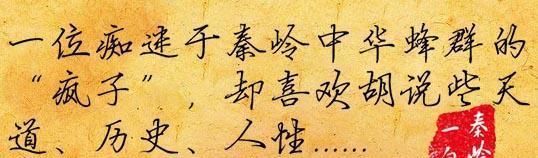 一位痴迷于秦岭中华蜂群的
“疯子”，却喜欢胡说些天
道、历史、人性……
秦岭
一